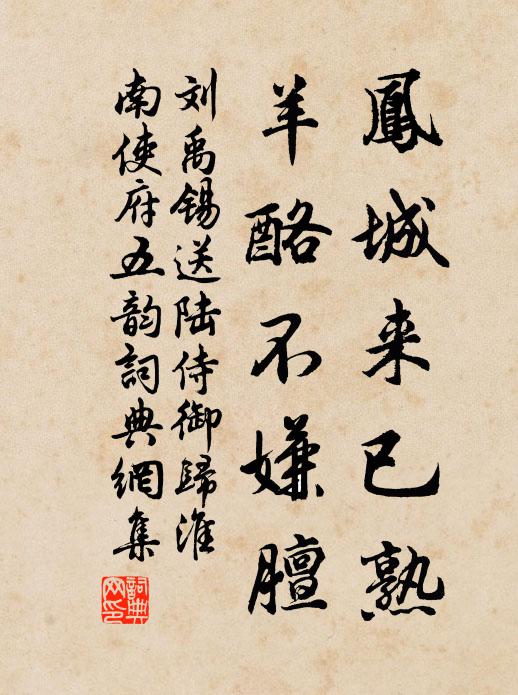 鳳城来已熟
羊酪不嫌膻
刘禹锡送陆侍御歸淮
南使府五韵詞典網集
詞典網印